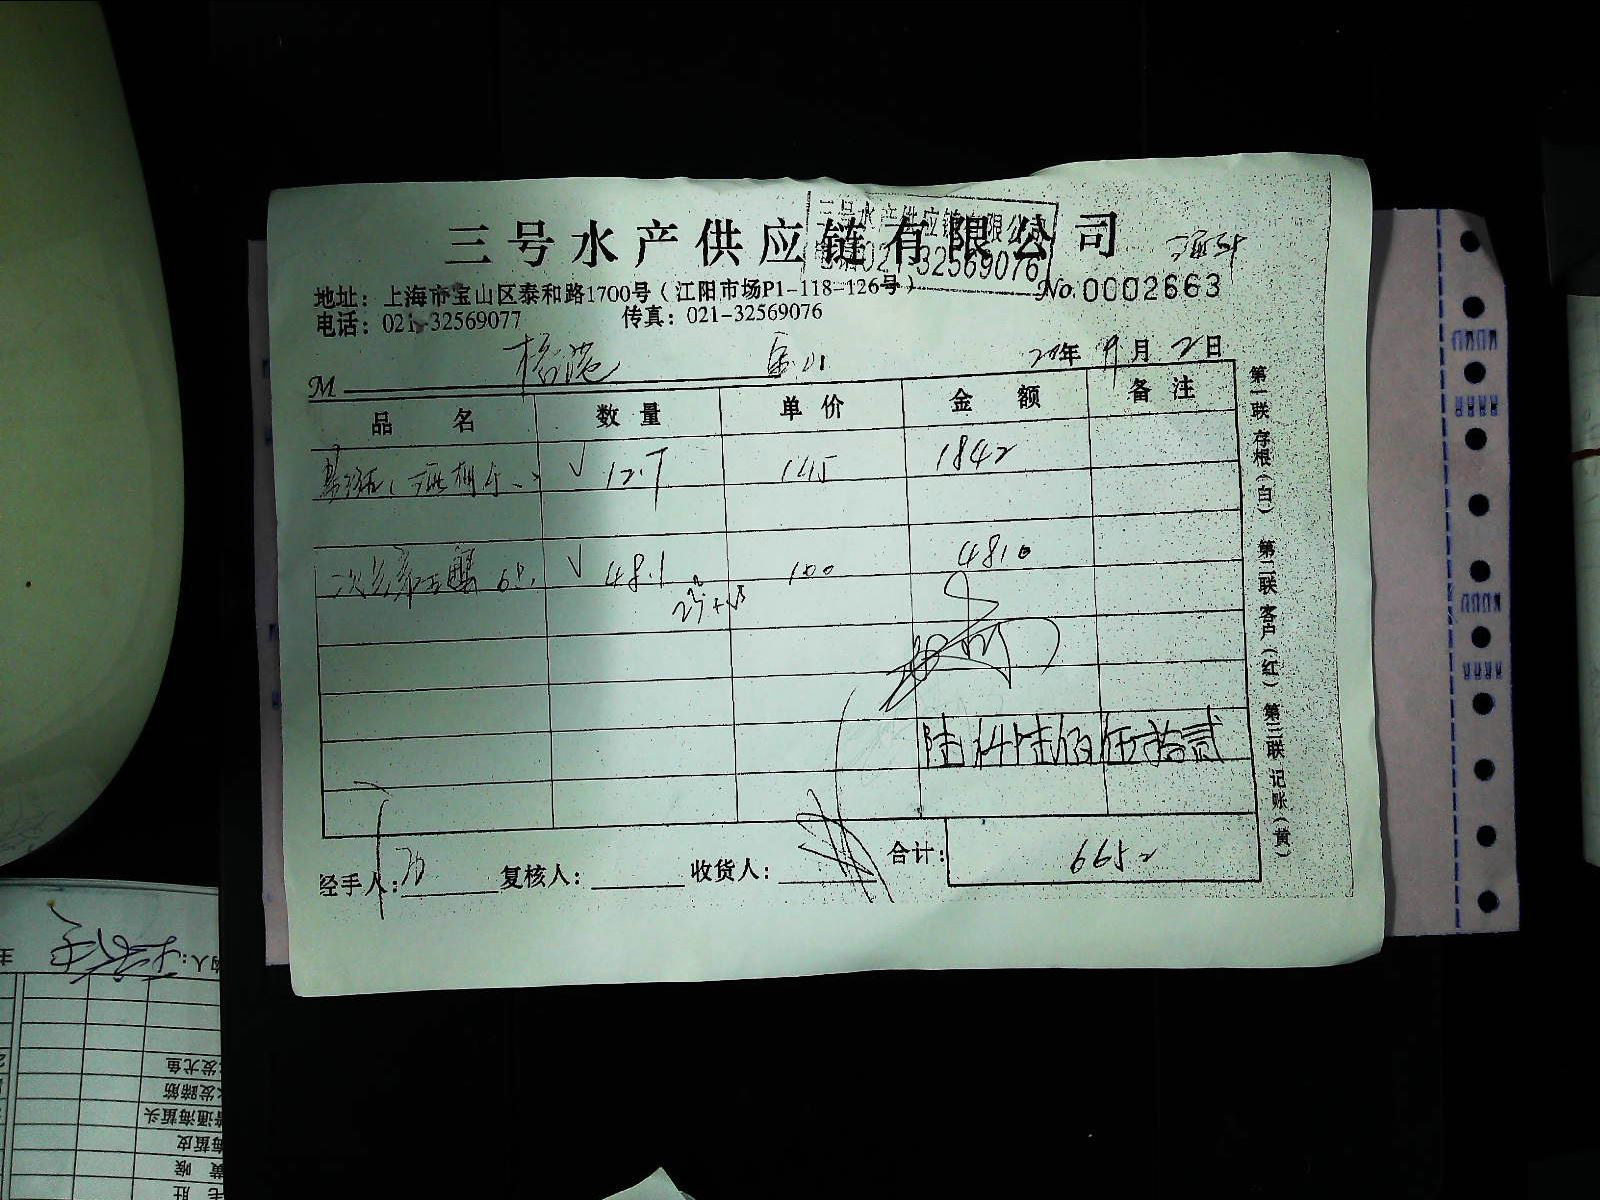 三号水产供应链有限公司
三号水产供应链有限公司
电话:021-32569076
地址：上海市宝山区泰和路1700号（江阳市场P1-118-126号）
No.0002663
电话：021-32569077 传真：021-32569076
M 宝山 年 9月2日
品名 数量 单价 金额 备注
√ 12.7 145 1842
√ 48.1 100 4810
陆仟陆佰伍拾贰
合计： 6652
经手人： 复核人： 收货人：
第一联 存根（白） 第二联 客户（红） 第三联 记账（黄）
发尤鱼
发蹄筋
普通海蜇头
海蜇皮
黄喉
毛肚